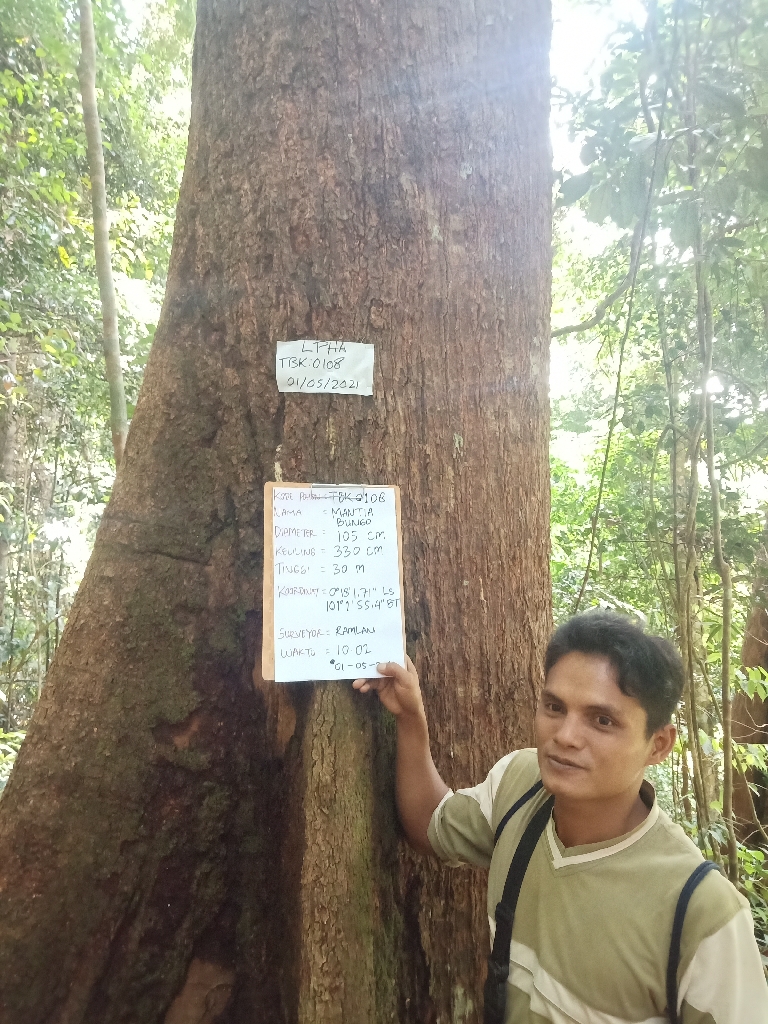 LPHA
TBK:0108
01/05/2021
KODE POHON = TBK 0108
NAMA = MANTIA
BUNGO
DIAMETER = 105 CM
KELILING = 330 CM
TINGGI = 30 M
KOORDINAT = 0°18'1.71" LS
101°1'55.4" BT
SURVEYOR = RAMLAN
WAKTU = 10:02
01-05-